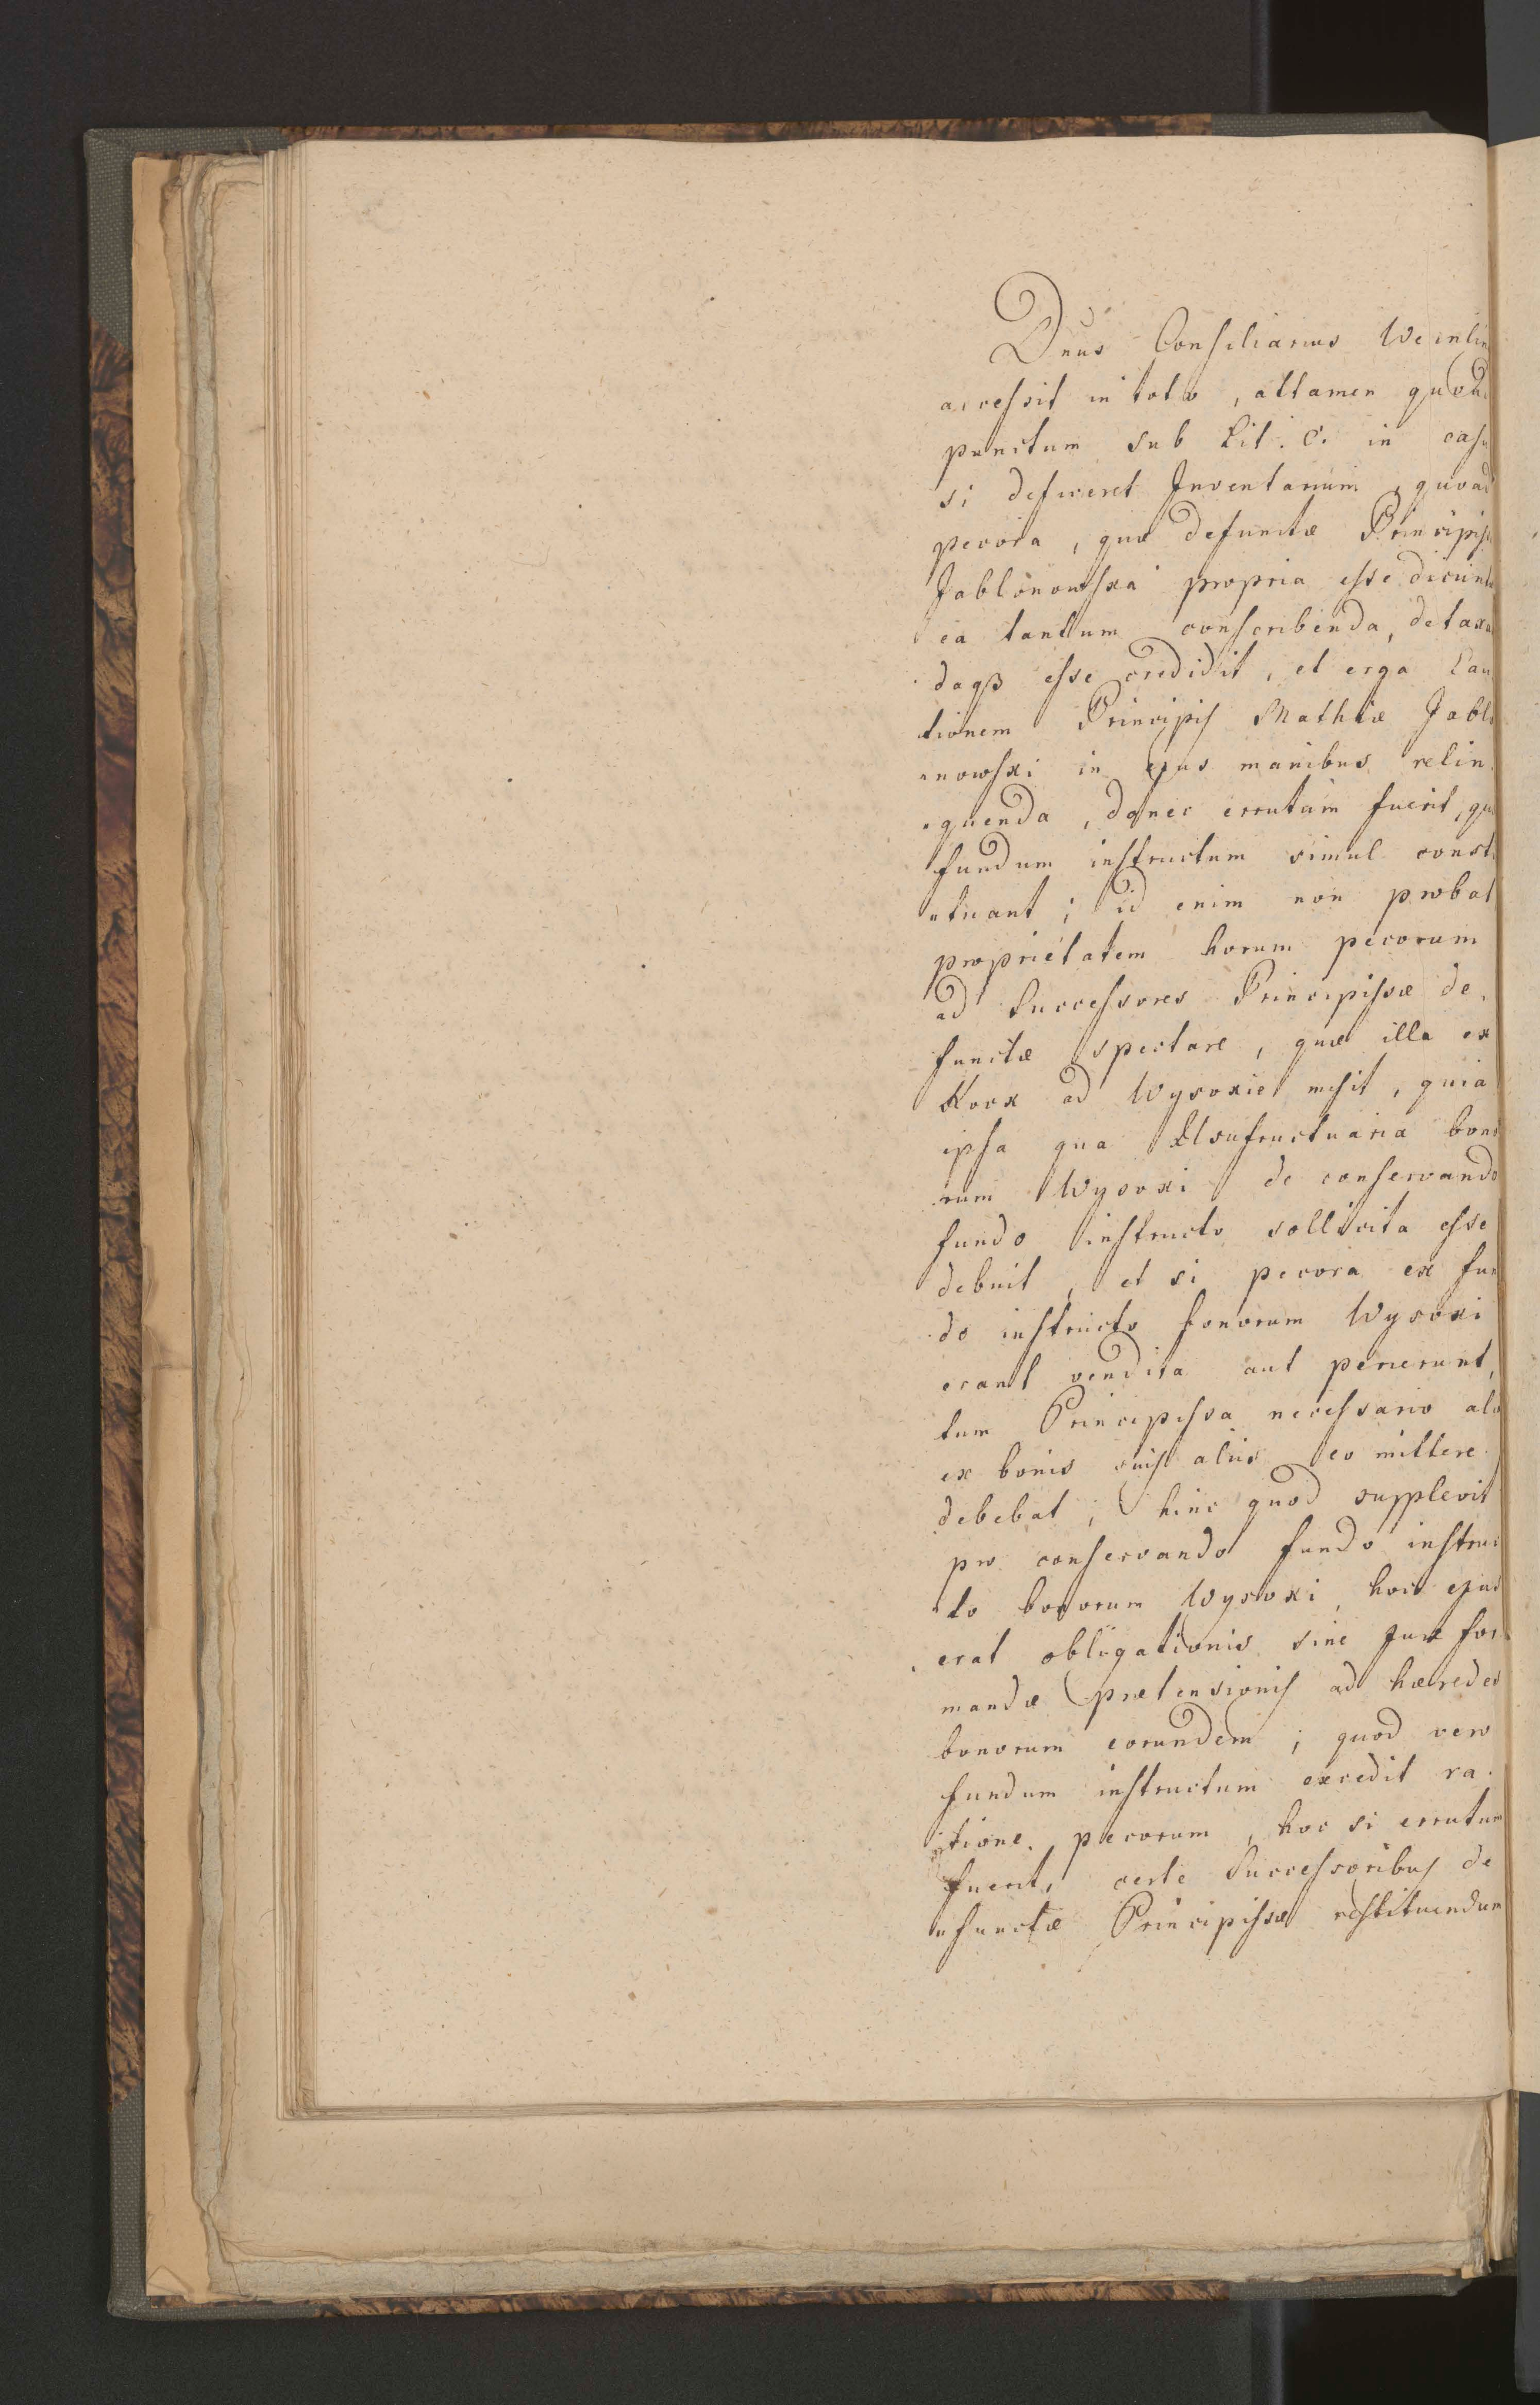 Dnus Consiliarius Weinlin
accessit in toto, attamen quoad
punctum sub Lit. C. in casu
si deficeret Inventarium, quoad
pecora, quæ defunctæ Principiss
Jablonowska propria esse dicunt
ea tantum conscribenda, detaxa
daqß esse credidit, et erga Cau
tionem Principis Mathiæ Jablo
nowski in ejus manibus relin
quenda, donec errutum fuerit, qu
fundum instructum simul consti
tuant; id enim non probat
proprietatem horum pecorum
ad Successores Principissæ de
functæ spectare, quæ illa ex
Kock ad Wysokie misit, quia
ipsa qua Usufructuaria bono
rum Wysoki de conservando
fundo instructo sollicita esse
debuit, et si pecora ex fun
do instructo bonorum Wysoki
erant vendita aut perierunt,
tum Principissa necessario alo
ex bonis suis aliis eo mittere
debebat; hinc quod supplevit
pro conservando fundo instruc
to bonorum Wysoki, hoc ejus
erat obligationis sine Jure for
mandæ prætensionis ad hæredes
bonorum eorundem; quod vero
fundum instructum excedit ra
tione pecorum, hoc si errutum
fuerit, certe Successoribus de
functæ Principissæ restituendum